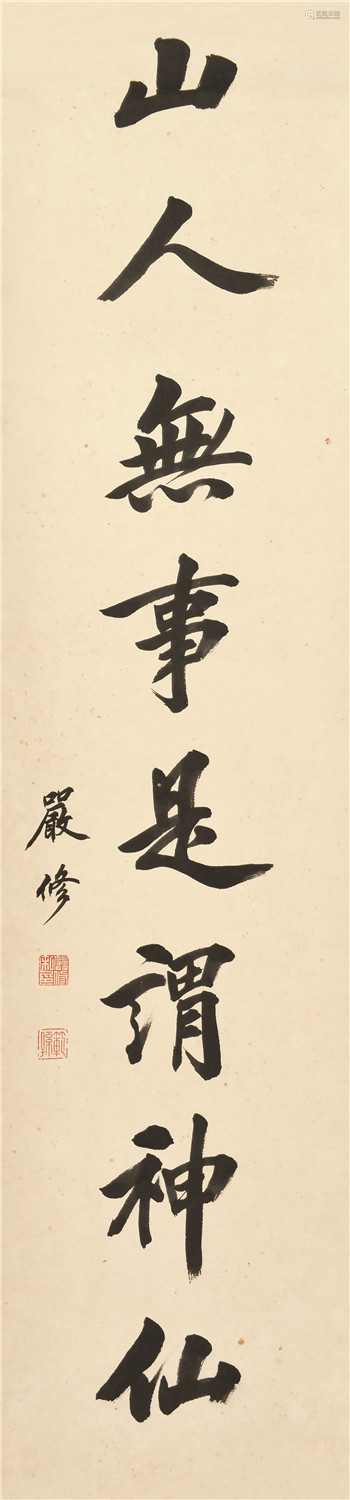 山人無事是謂神仙
嚴修
範孫